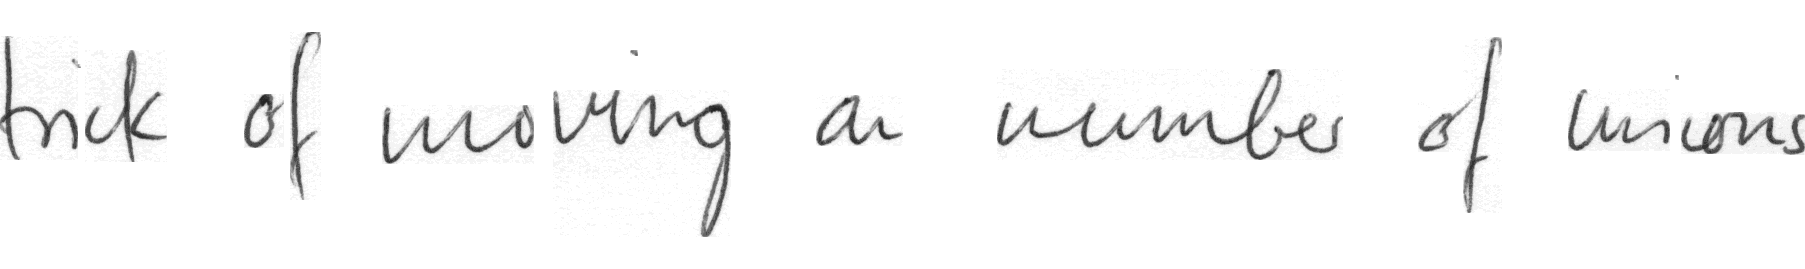 trick of moving a number of unions